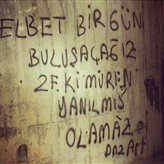 ELBET BİR GÜN
BULUŞAÇAĞIZ
ZEKİ MÜREN
YANILMIŞ
OLAMAZ
DpzArt